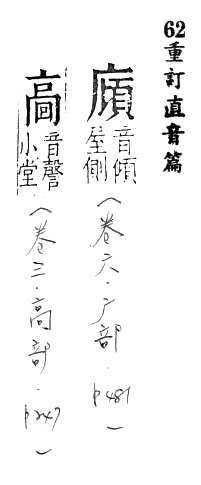 62重訂直音篇
廎 音傾 屋側 (卷六.广部.p481)
音謦 小堂 (卷三.高部.p247)